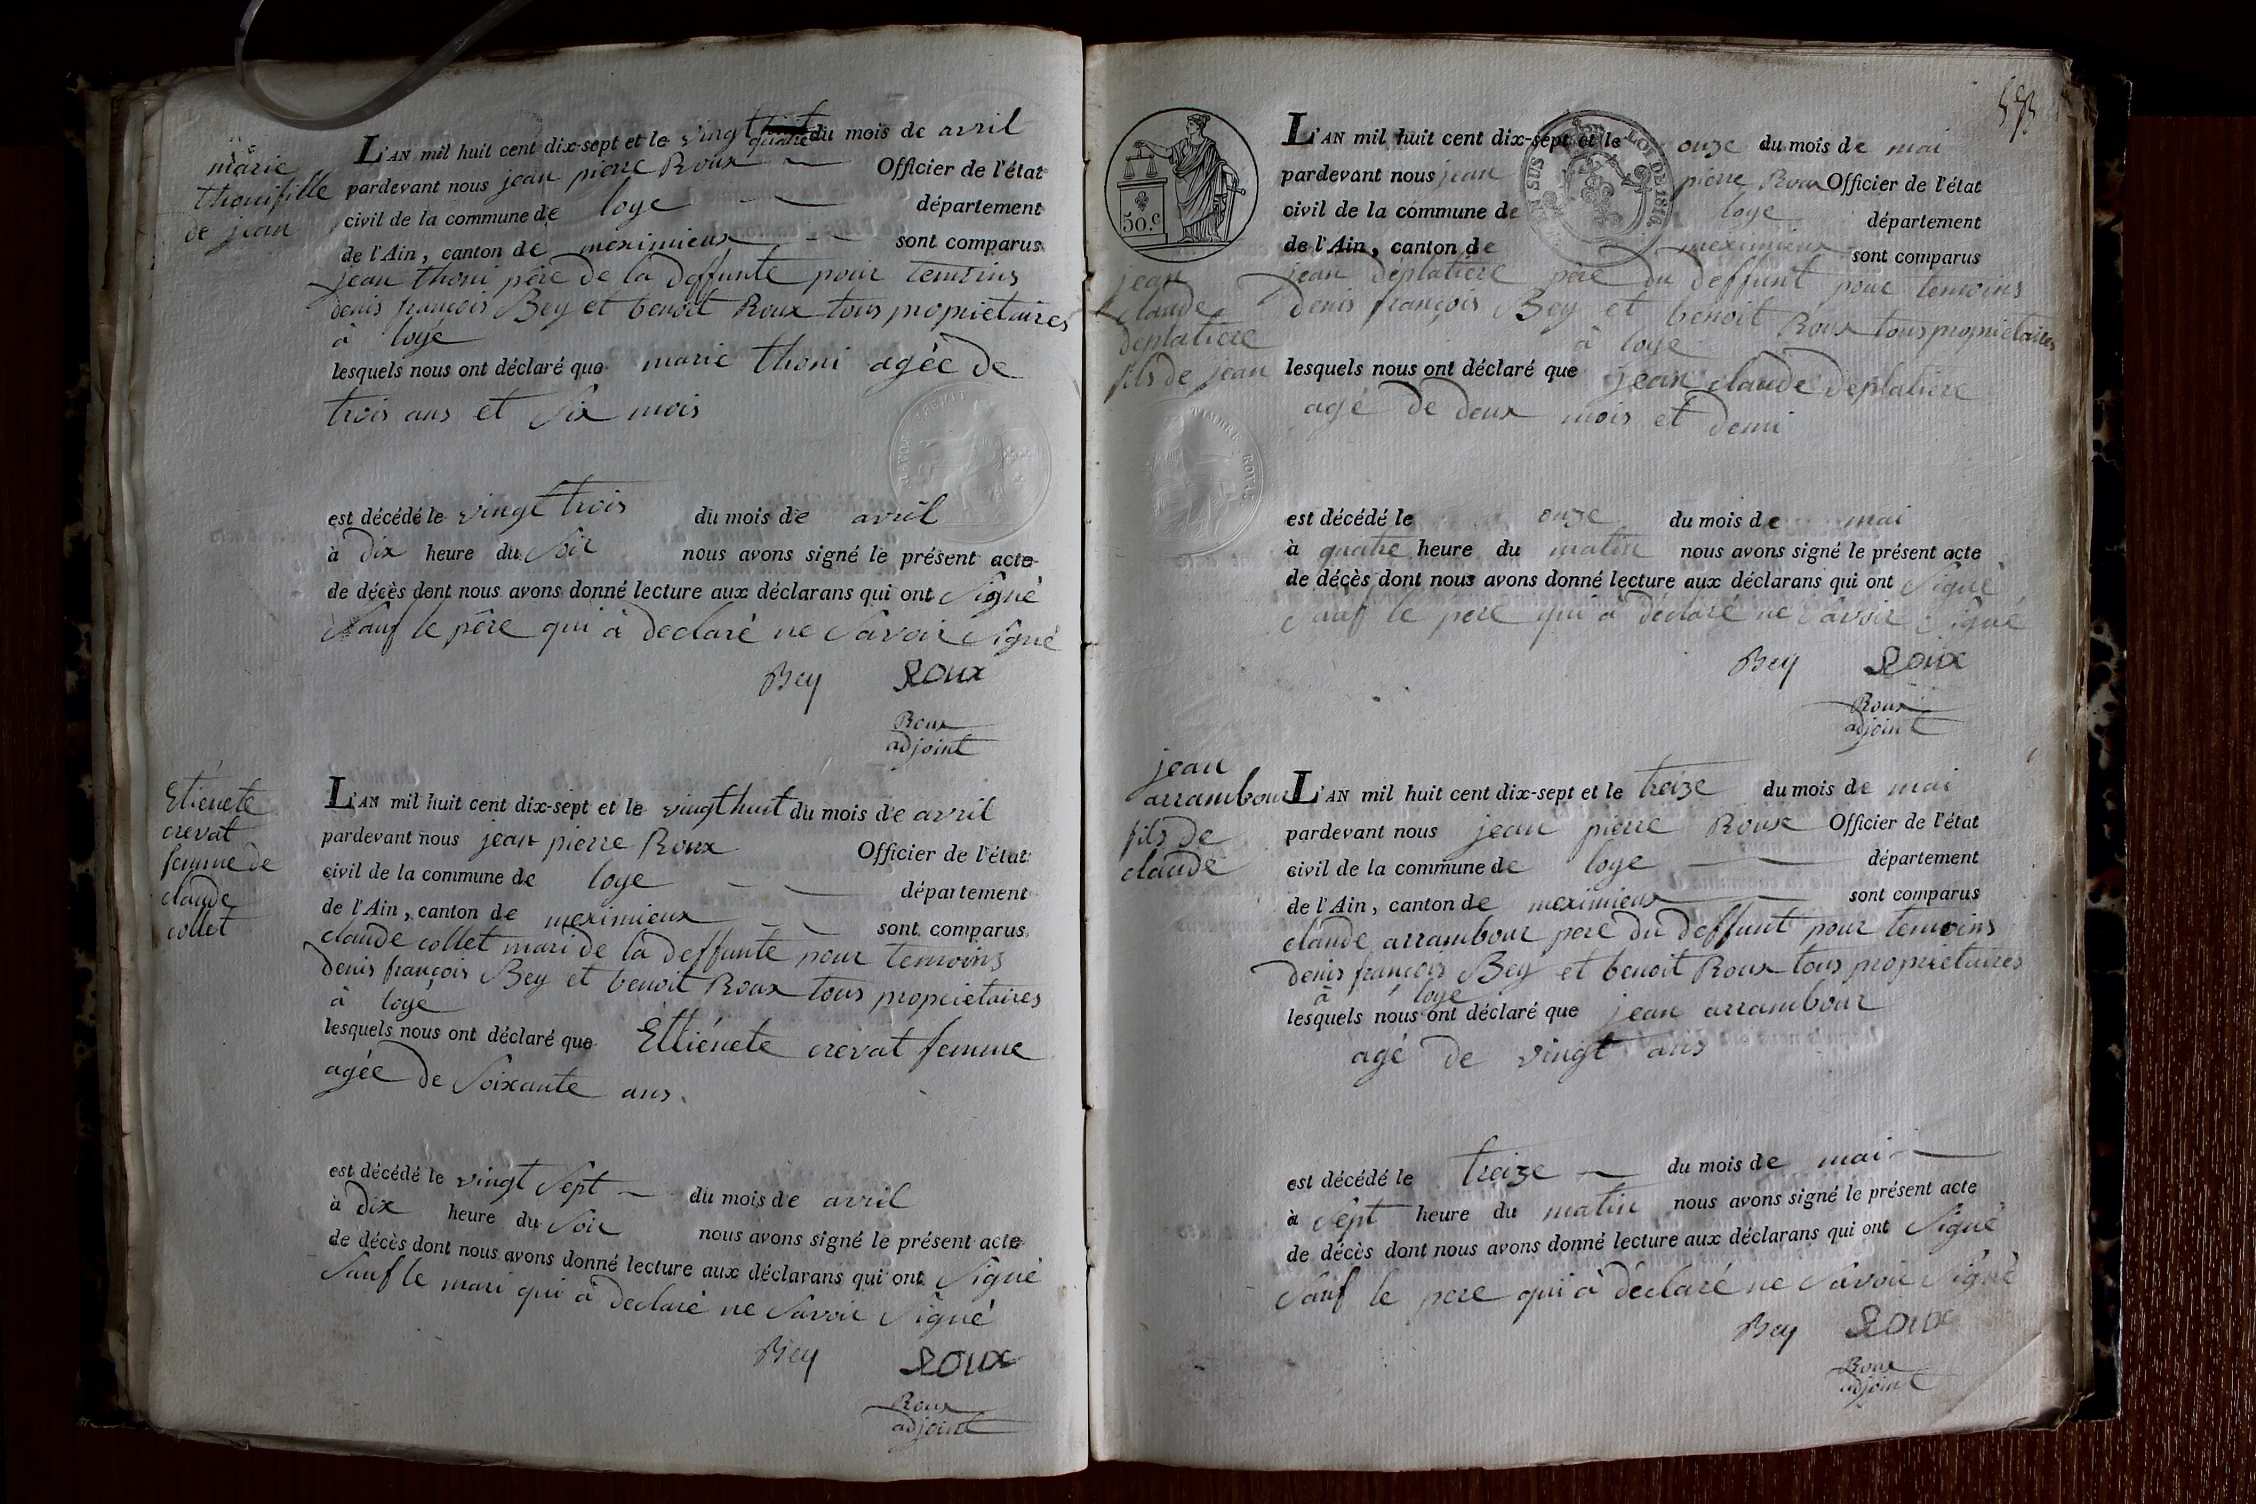 marie
thoni fille
de jean
L'AN mil huit cent dix-sept et le vingt quatre du mois de avril
pardevant nous jean pierre Roux Officier de l'état
civil de la commune de loye département
de l'Ain, canton de meximieux sont comparus
jean thoni pére de la deffunte pour temoins
denis françois Bey et benoit Roux tous proprietaires
à loye
lesquels nous ont déclaré que marie thoni agée de
trois ans et six mois
est décédé le vingt trois du mois de avril
à dix heure du soir nous avons signé le présent acte
de décès dont nous avons donné lecture aux déclarans qui ont signé
sauf le pére qui à declaré ne savoir signé
Bey Roux
Roux
adjoint
Etienete
crevat
femme de
claude
collet
L'AN mil huit cent dix-sept et le vingt huit du mois de avril
pardevant nous jean pierre Roux Officier de l'état
civil de la commune de loye département
de l'Ain, canton de meximieux sont comparus
claude collet mari de la deffunte pour temoins
denis françois Bey et benoit Roux tous proprietaires
à loye
lesquels nous ont déclaré que Ettiénete crevat femme
agée de soixante ans.
est décédé le vingt sept du mois de avril
à dix heure du soir nous avons signé le présent acte
de décès dont nous avons donné lecture aux déclarans qui ont signé
sauf le mari qui à declaré ne savoir signé
Bey Roux
Roux
adjoint
50.c
SUS
LOI DE 1816
TIMBRE ROYAL
jean
claude
deplatiere
fils de jean
L'AN mil huit cent dix-sept et le onze du mois de mai
pardevant nous jean pierre Roux Officier de l'état
civil de la commune de loye département
de l'Ain, canton de meximieux sont comparus
jean deplatiere pére du deffunt pour temoins
denis françois Bey et benoit Roux tous proprietaires
à loye
lesquels nous ont déclaré que jean claude deplatiere
agé de deux mois et demi
est décédé le onze du mois de mai
à quatre heure du matin nous avons signé le présent acte
de décès dont nous avons donné lecture aux déclarans qui ont signé
sauf le pere qui à déclaré ne savoir signé
Bey Roux
Roux
adjoint
jean
arrambour
fils de
claude
L'AN mil huit cent dix-sept et le treize du mois de mai
pardevant nous jean pierre Roux Officier de l'état
civil de la commune de loye département
de l'Ain, canton de meximieux sont comparus
claude arrambour pere du deffunt pour temoins
denis françois Bey et benoit Roux tous proprietaires
à loye
lesquels nous ont déclaré que jean arrambour
agé de vingt ans
est décédé le treize du mois de mai
à sept heure du matin nous avons signé le présent acte
de décès dont nous avons donné lecture aux déclarans qui ont signé
sauf le pere qui à déclaré ne savoir signé
Bey Roux
Roux
adjoint